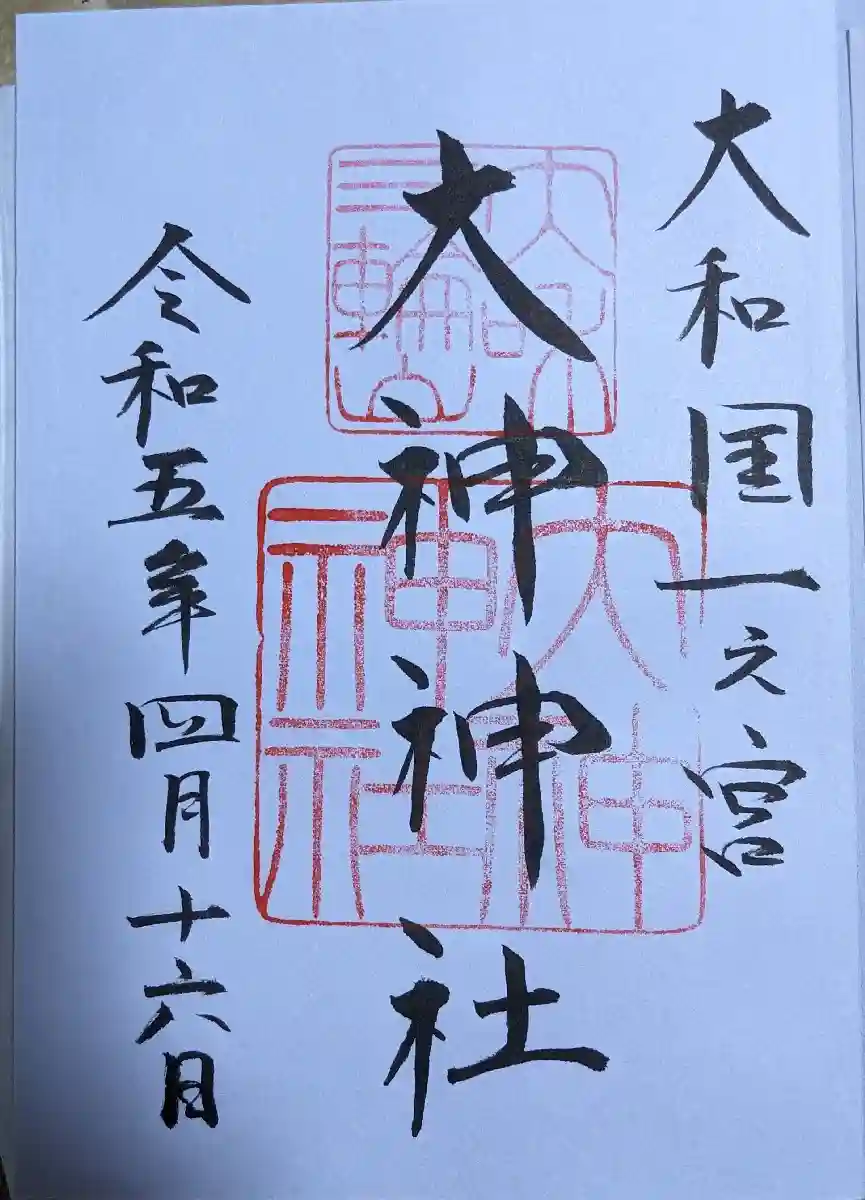 大和国一之宮
大和
三輪山
大神神社
大神
神社
令和五年四月十六日